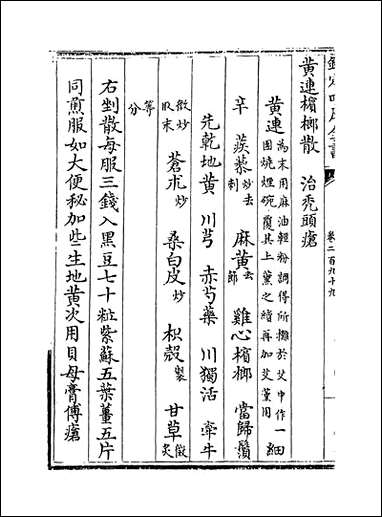 欽定四庫全書 卷二百九十九
黄連檳榔散 治禿頭瘡
黄連 為末用麻油輕粉調得所攤於艾中作一團燒煙碗覆其上薰之續再加艾薰用 細
辛 蒺藜 炒去刺 麻黄 去節 雞心檳榔 當歸鬚
先乾地黄 川芎 赤芍藥 川獨活 牽牛
微炒取末 蒼朮 炒 桑白皮 炒 枳殻 製 甘草 微炙
等分
右剉散每服三錢入黑豆七十粒紫蘇五葉薑五片
同煎服如大便秘加些生地黄次用貝母膏傅瘡